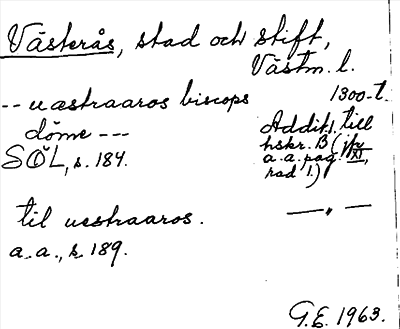 Västerås, stad och stift,
Västm. l.
-- uæstraaros biscops
döme ---
SÖL, s. 184.
1300-t.
Addit. 1. till
hskr. B (jfr
a. a. pag. XI,
rad 1.)
til uestraaros.
a. a., s. 189.
—„—
G. E. 1963.